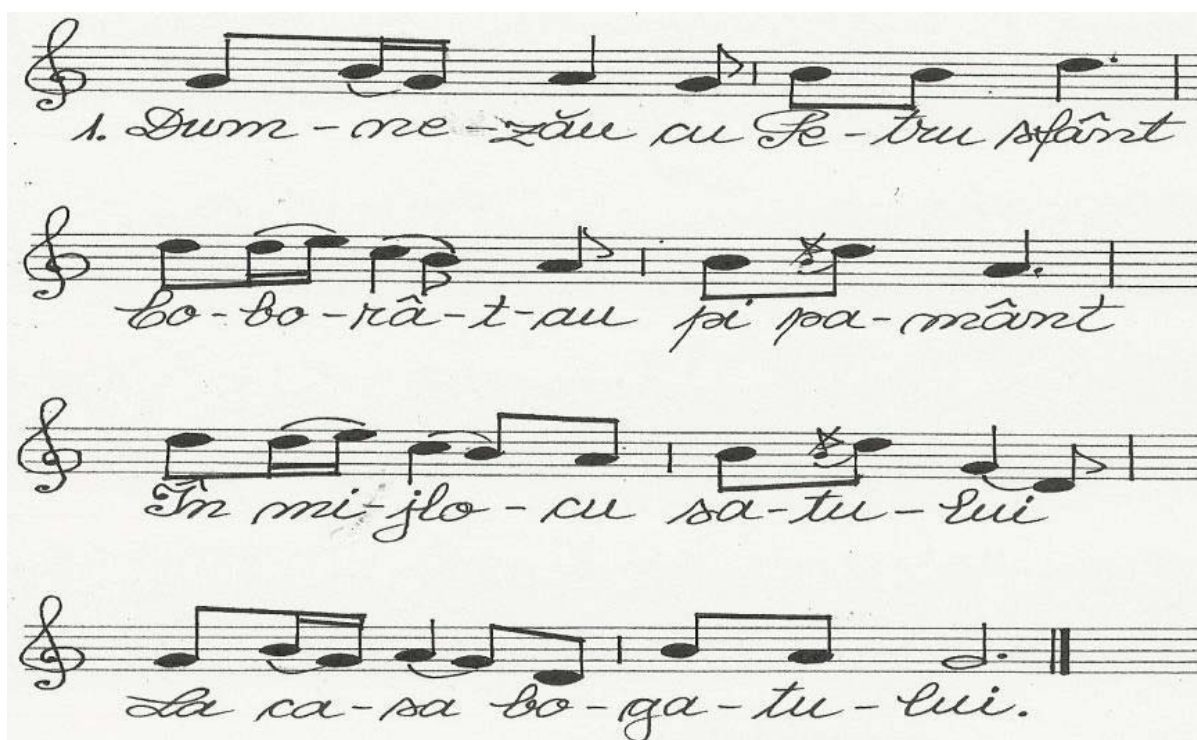 1. Dum-ne-zău cu Pe-tru sfânt
bo-bo-râ-t-au pi pa-mânt
În mi-jlo-cu sa-tu-lui
La ca-sa bo-ga-tu-lui.